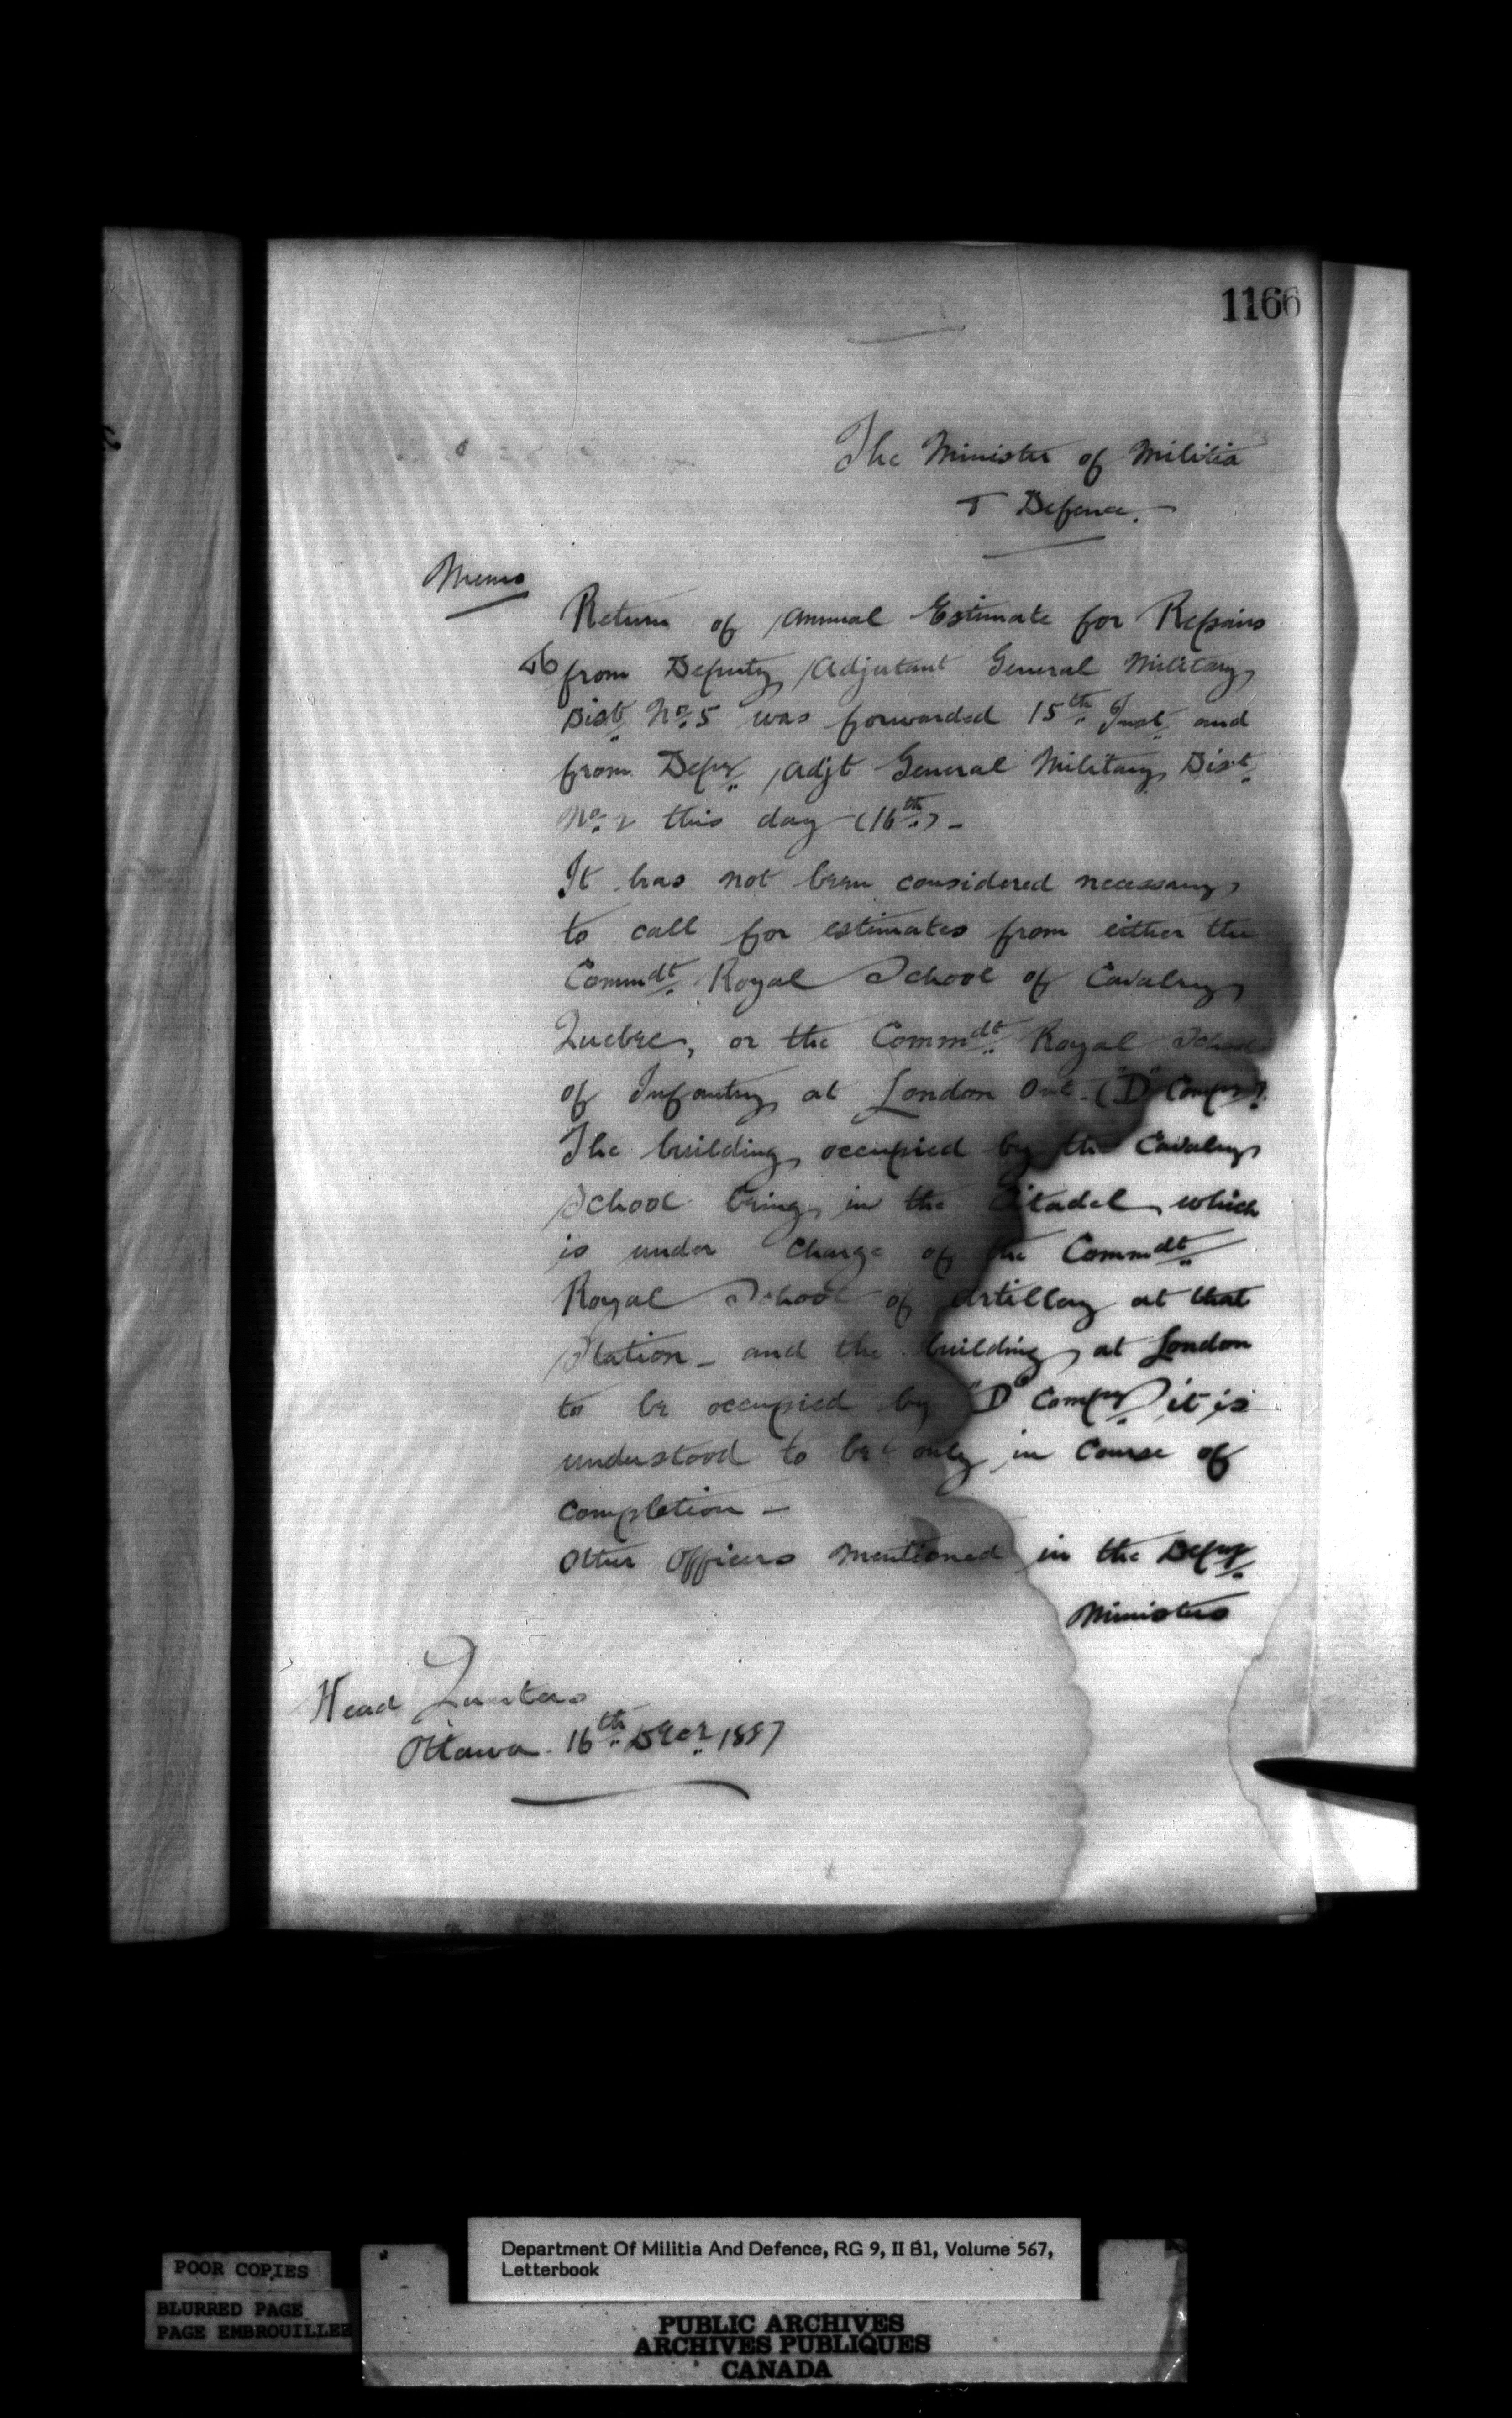 1166
The Minister of Militia
& Defence.
Memo
Return of Annual Estimate for Repairs
from Deputy Adjutant General Military
Dist. No. 5 was forwarded 15th Inst. and
from Depy. Adjt General Military Dist.
No. 2 this day (16th.) -
It has not been considered necessary
to call for estimates from either the
Commdt. Royal School of Cavalry
Quebec, or the Commdt. Royal School
of Infantry at London Ont. ("D" Compy).
The building occupied by the Cavalry
School being in the Citadel which
is under charge of the Commdt.
Royal School of Artillery at that
Station - and the building at London
to be occupied by "D" Compy. it is
understood to be only in course of
completion -
Other Officers mentioned in the Depy.
Ministers
Head Quarters
Ottawa. 16th. Decr. 1887
Department Of Militia And Defence, RG 9, II B1, Volume 567,
Letterbook
POOR COPIES
BLURRED PAGE
PAGE EMBROUILLEE
PUBLIC ARCHIVES
ARCHIVES PUBLIQUES
CANADA